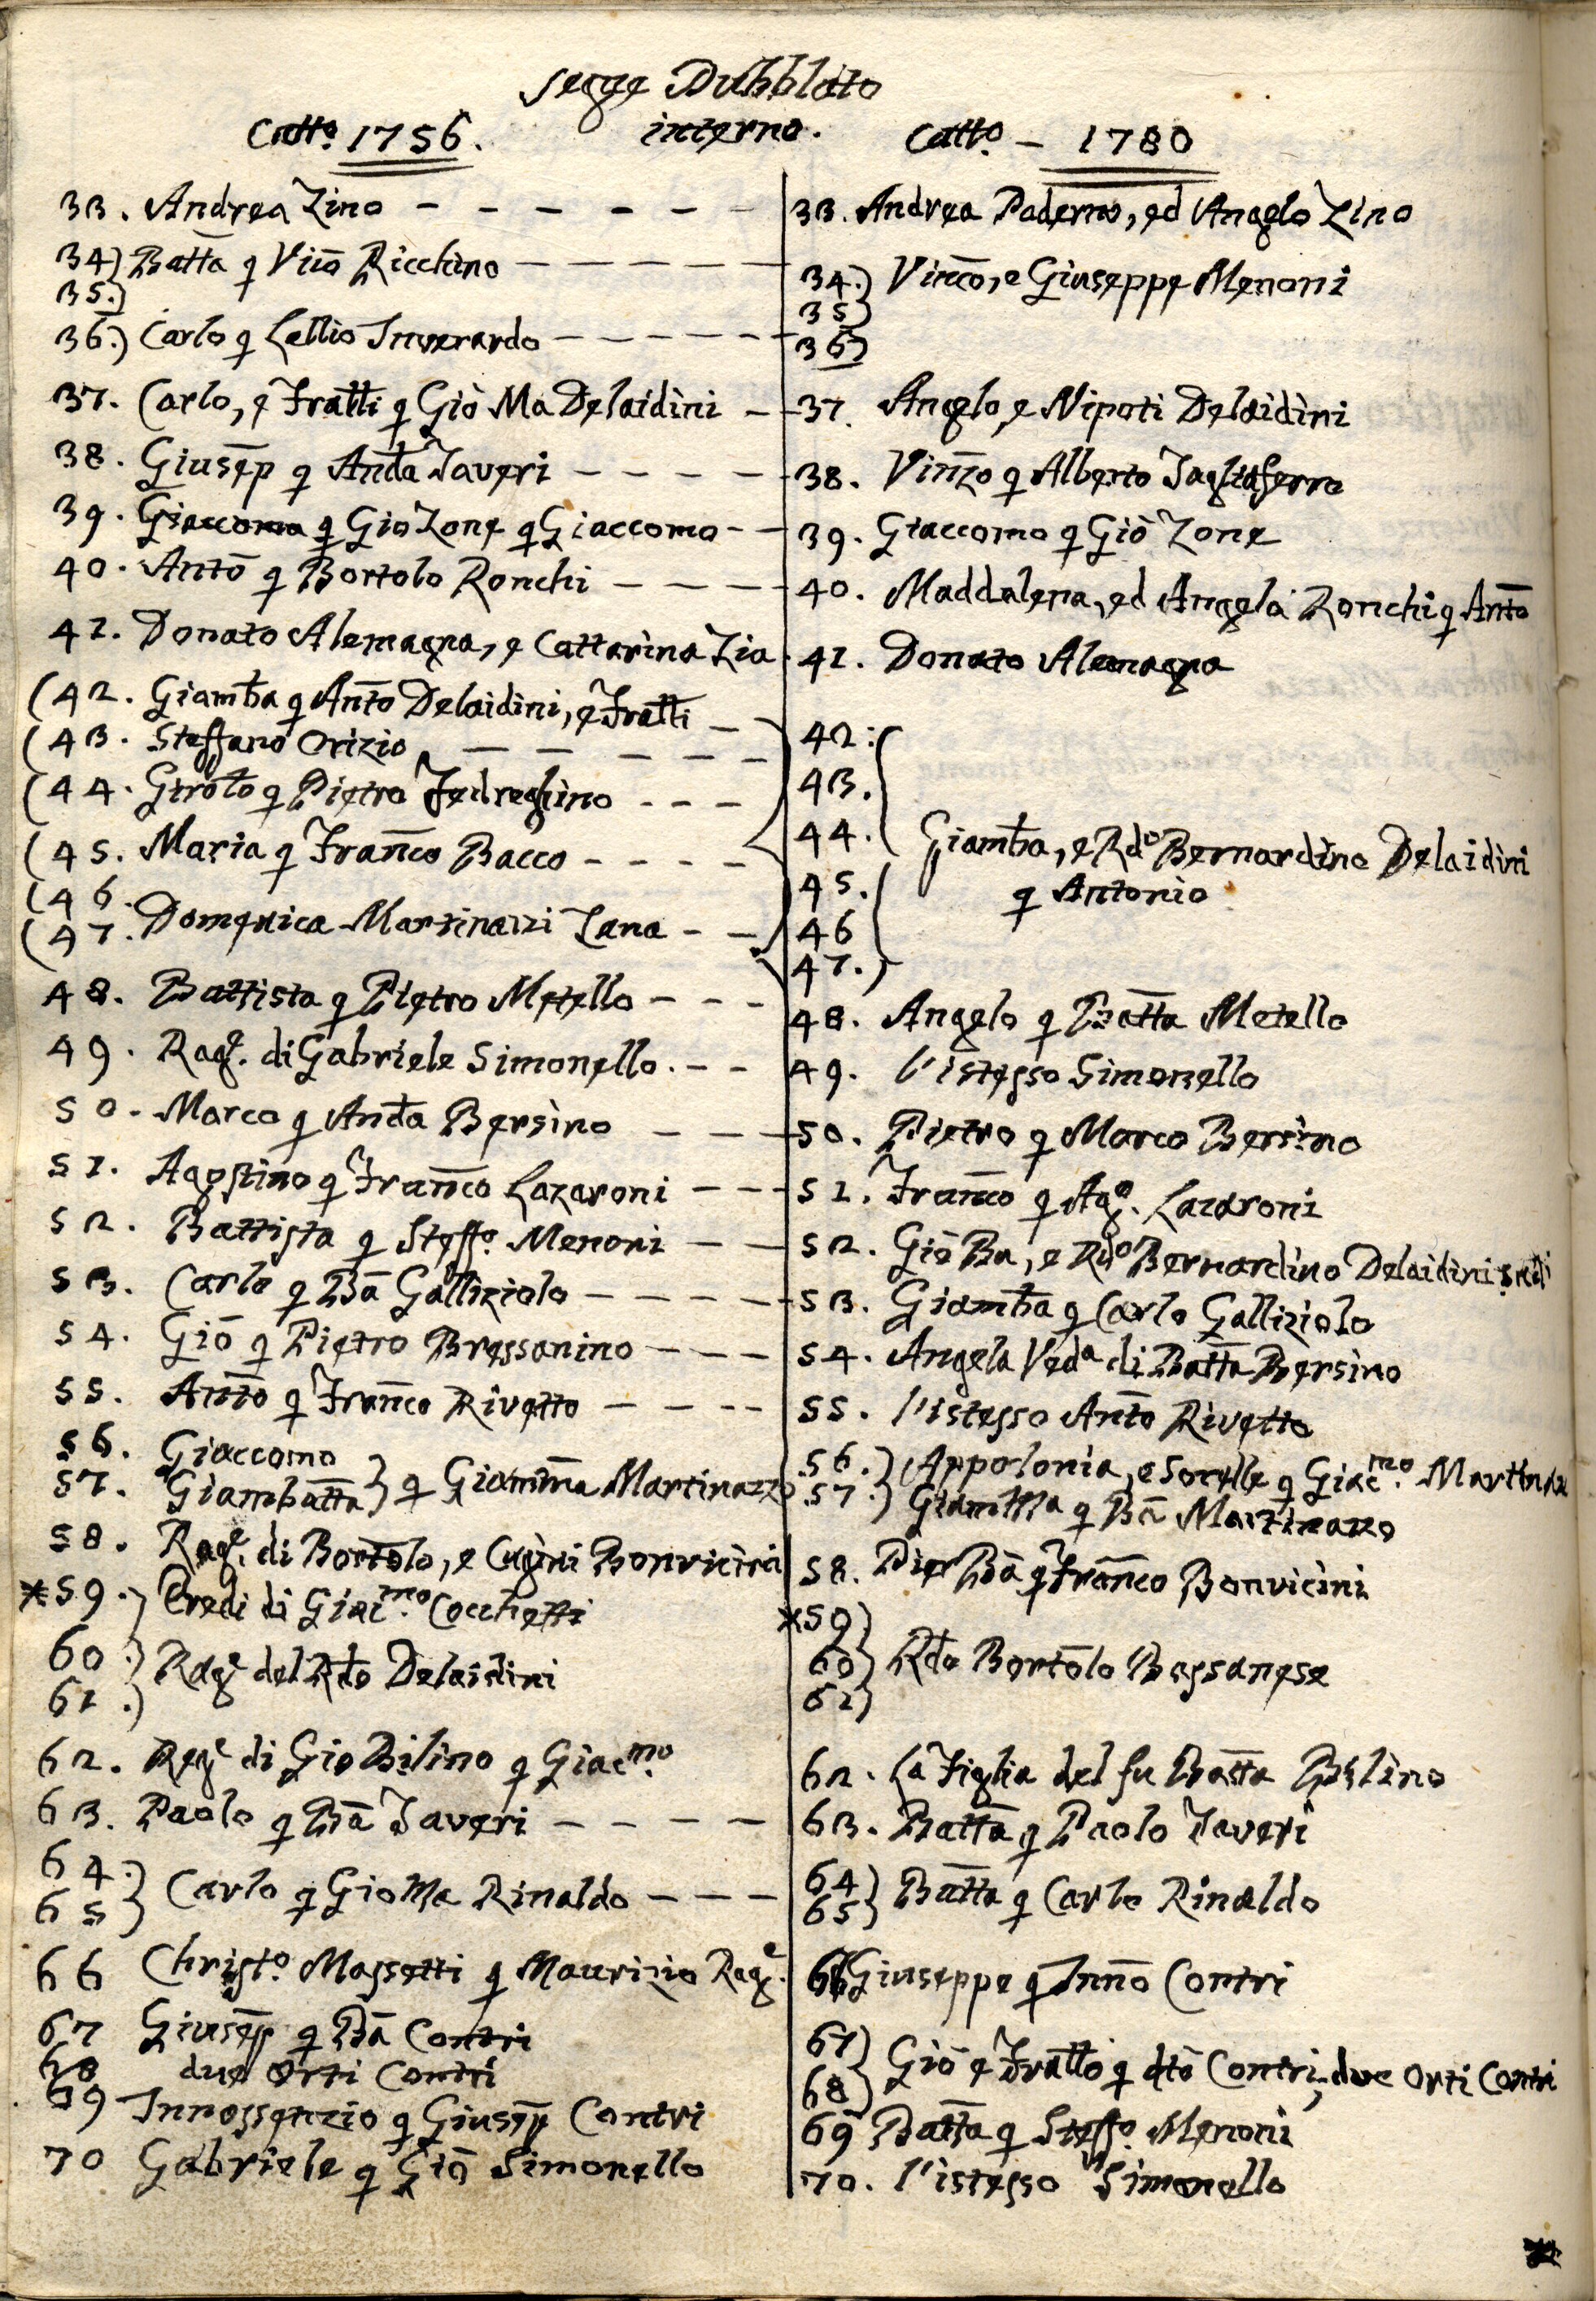 segue Dubblato
interno.
Catto. 1756.
33. Andrea Zino
34) Batta q Vico Ricchino
35.)
36.) Carlo q Lellio Inverardo
37. Carlo, e Fratti q Giò Ma Delaidini
38. Giusep q Andta Taveri
39. Giaccomo q Gio Zone q Giaccomo
40. Antō q Bortolo Ronchi
41. Donato Alemagna, e Cattarina Zia
(42. Giambta q Antō Delaidini, e Fratti
(43. Steffano Orizio
(44. Girolto q Pietro Fedreghino
(45. Maria q Franco Bacco
(46.
(47. Domenica Martinazzi Zana
48. Battista q Pietro Metello
49. Rage. di Gabriele Simonello.
50. Marco q Andta Bersino
51. Agostino q Franco Lazaroni
52. Battista q Steffo. Menoni
53. Carlo q Bā Galliziolo
54. Giō q Pietro Bressanino
55. Antō q Franco Rivetto
56. Giaccomo
57. Giambatta } q Giamma Martinazzo
58. Rage. di Bortolo, e Cugini Bonvicini
*59.) Eredi di Giacmo. Cocchetti
60.) Rage del Rdo Delaidini
61.)
62. Rage di Gio Bilino q Giacmo.
63. Paolo q Bā Taveri
64.)
65 } Carlo q Gio Ma Rinaldo
66 Christo. Massetti q Maurizio Rage.
67 Giusep q Bā Contri
68 due Orti Contri
69 Innossenzio q Giusep Contri
70 Gabriele q Giō Simonello
Catto. - 1780
33. Andrea Paderno, ed Angelo Zino
34.) Vinco, e Giuseppe Menoni
35)
36)
37. Angelo, e Nipoti Delaidini
38. Vinzo q Alberto Tagliaferro
39. Giaccomo q Giò Zone
40. Maddalena, ed Angela Ronchi q Antō
41. Donato Alemagna
42.
43.
44. Giambta, e Rdo Bernardino Delaidini
45. q Antonio
46
47.)
48. Angelo q Batta Metello
49. l'istesso Simonello
50. Pietro q Marco Bersino
51. Franco q Ago. Lazaroni
52. Giò Ba, e Rdo Bernardino Delaidini
53. Giambta q Carlo Galliziolo
54. Angela Veda di Batta Bersino
55. l'istesso Antō Rivetto
56.) Appolonia, e Sorelle q Giacmo.
57.) q Bā Martinazzo
58. Pier Bā q Franco Bonvicini
*59)
60) Rdo Bortolo Bassanese
61)
62. La Figlia del fu Batta Bilino
63. Batta q Paolo Taveri
64)
65} Batta q Carlo Rinaldo
66 Giuseppe q Innō Contri
67)
68) Giō e Fratto q dtō Contri, due Orti Contri
69 Batta q Steffo. Menoni
70. l'istesso Simonello